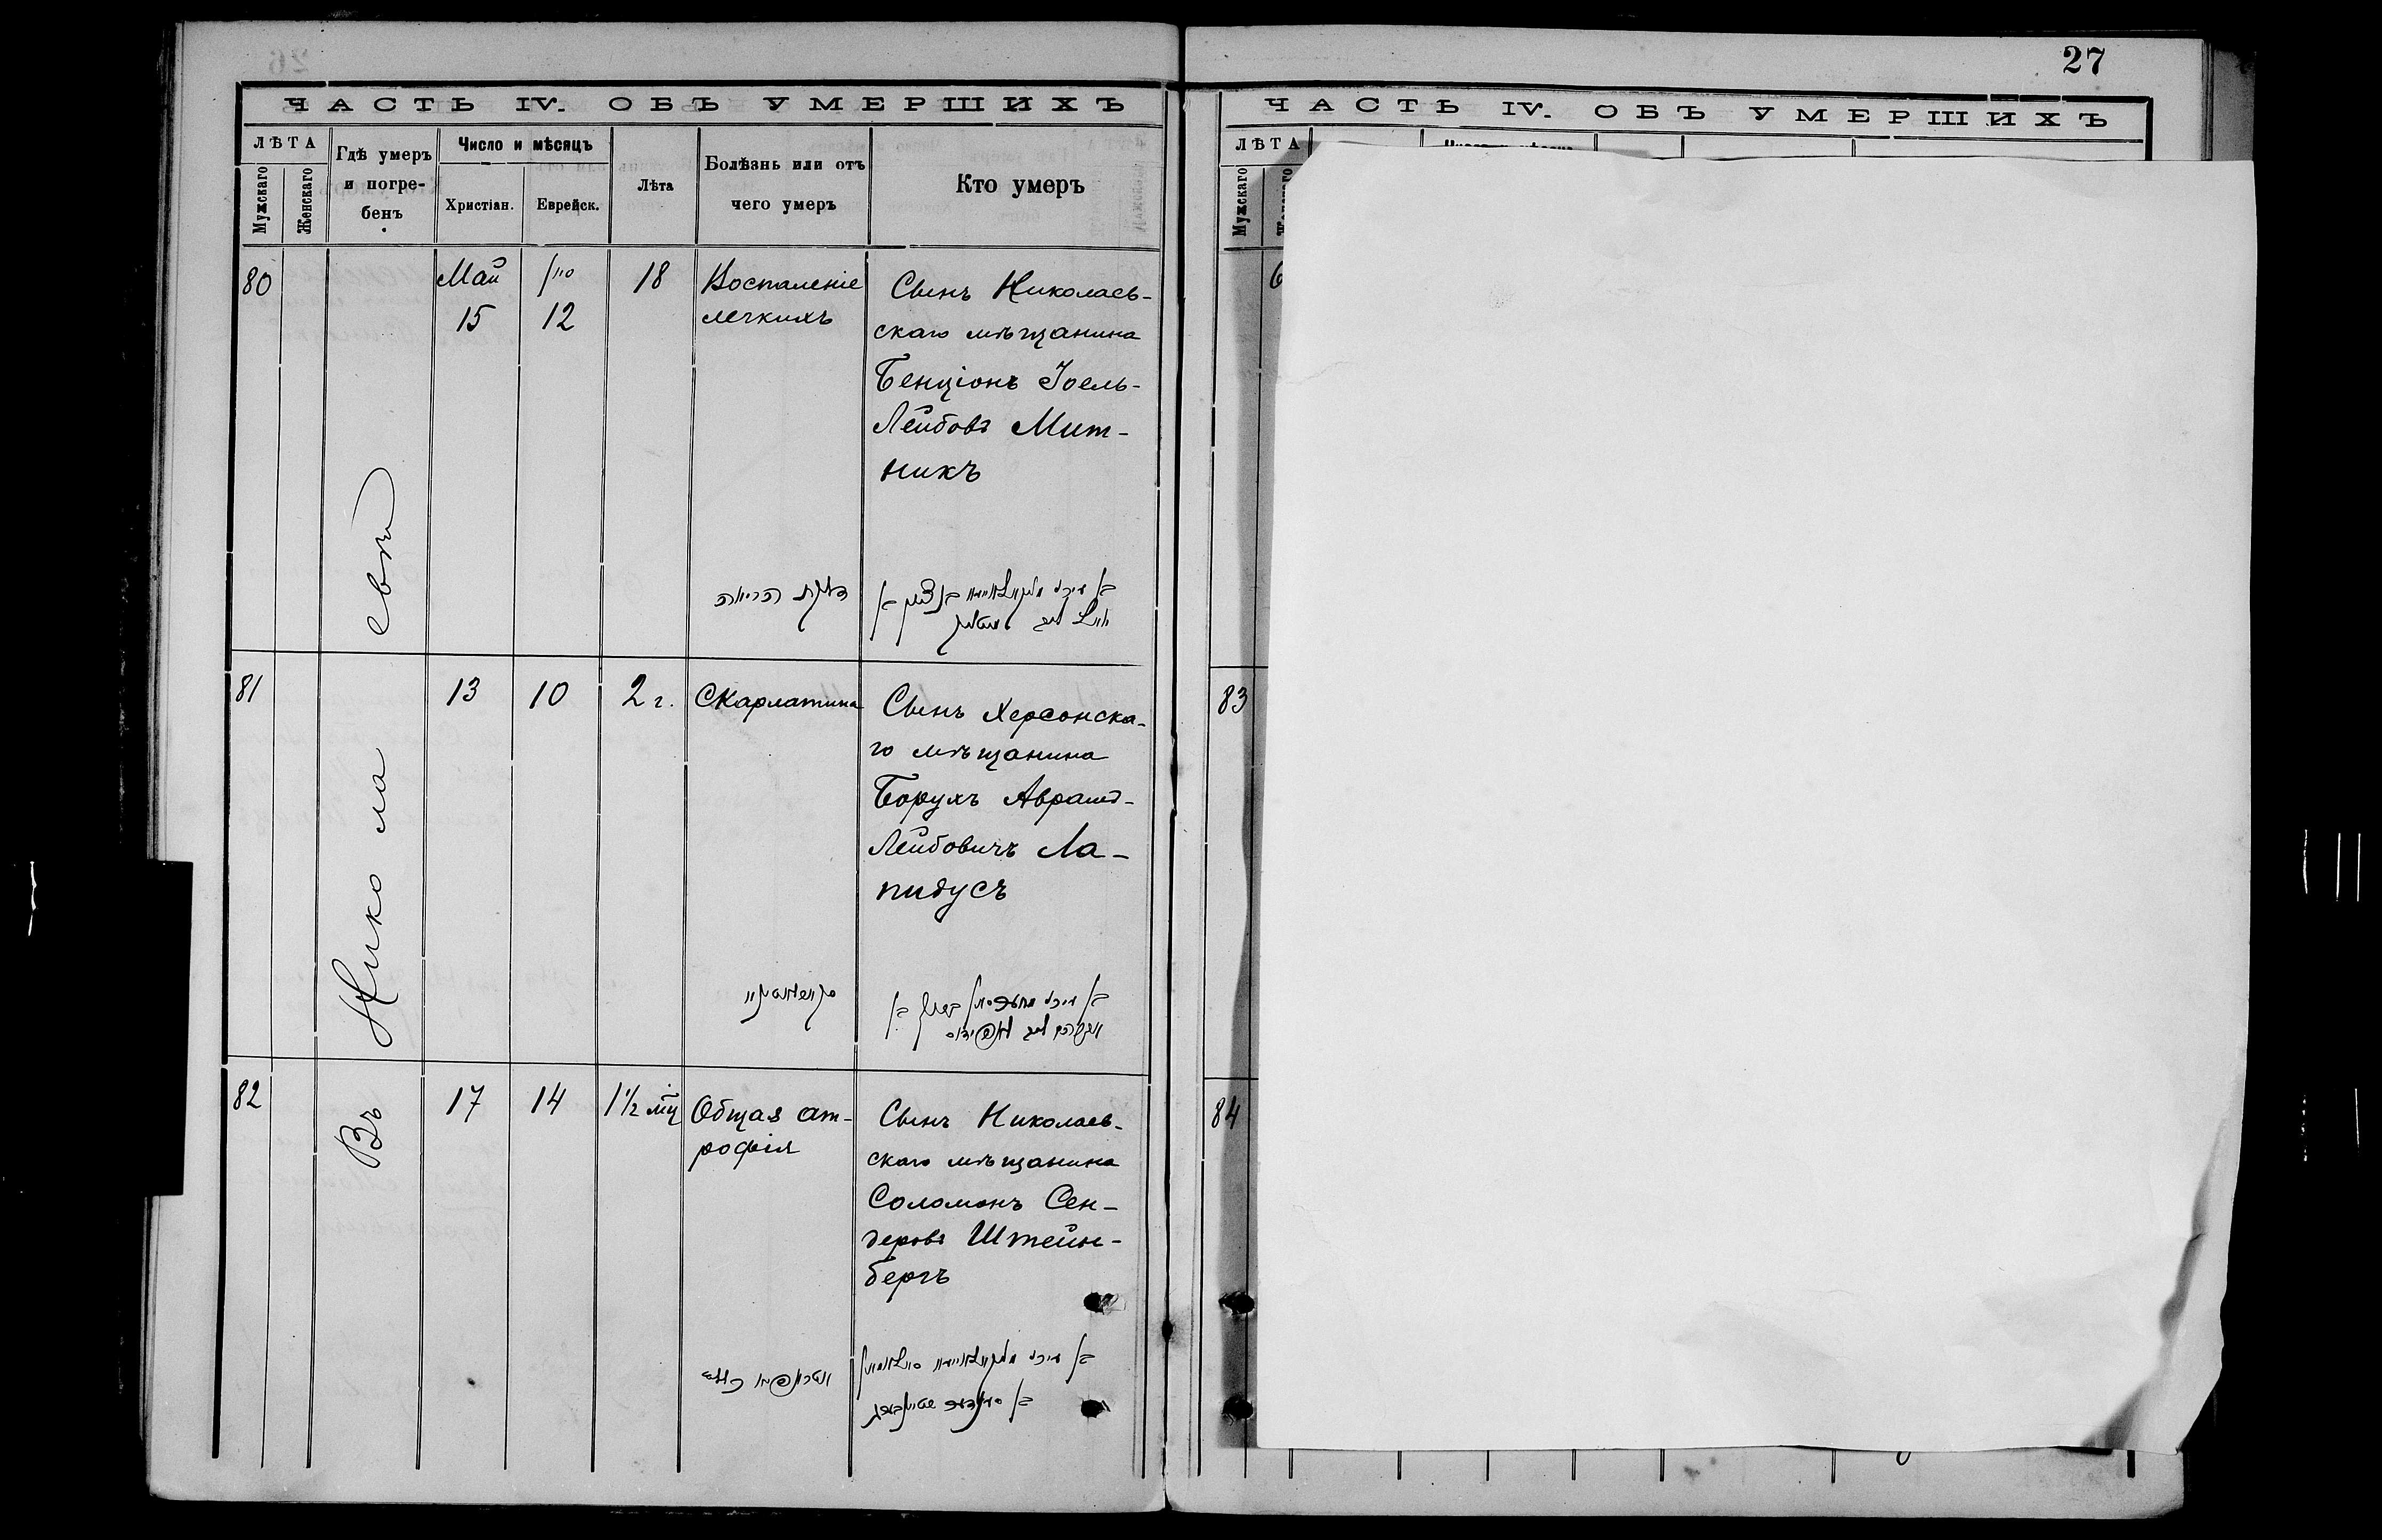 ЧАСТЬ IV. ОБЪ УМЕРШИХЪ
ЛѢТА
Мужскаго
Женскаго
Гдѣ умеръ
и погре-
бенъ
Число и мѣсяцъ
Христіан.
Еврейск.
Лѣта
Болѣзнь или отъ
чего умеръ
Кто умеръ
80
Май
15
סיון
12
18
Воспаленіе
легкихъ
Сынъ Николаев-
скаго мѣщанина
Бенціонъ Іоель-
Лейбовъ Мит-
никъ
דלקת הריאה
81
13
10
2 г.
Скарлатина
Сынъ Херсонска-
го мѣщанина
Борухъ Аврамъ-
Лейбовичъ Ла-
пидусъ
82
17
14
1½ мц
Общая ат-
рофія
Сынъ Николаев-
скаго мѣщанина
Соломонъ Сен-
деровъ Штейн-
бергъ
Въ Николаевѣ
27
ЧАСТЬ IV. ОБЪ УМЕРШИХЪ
ЛѢТА
Мужскаго
83
84